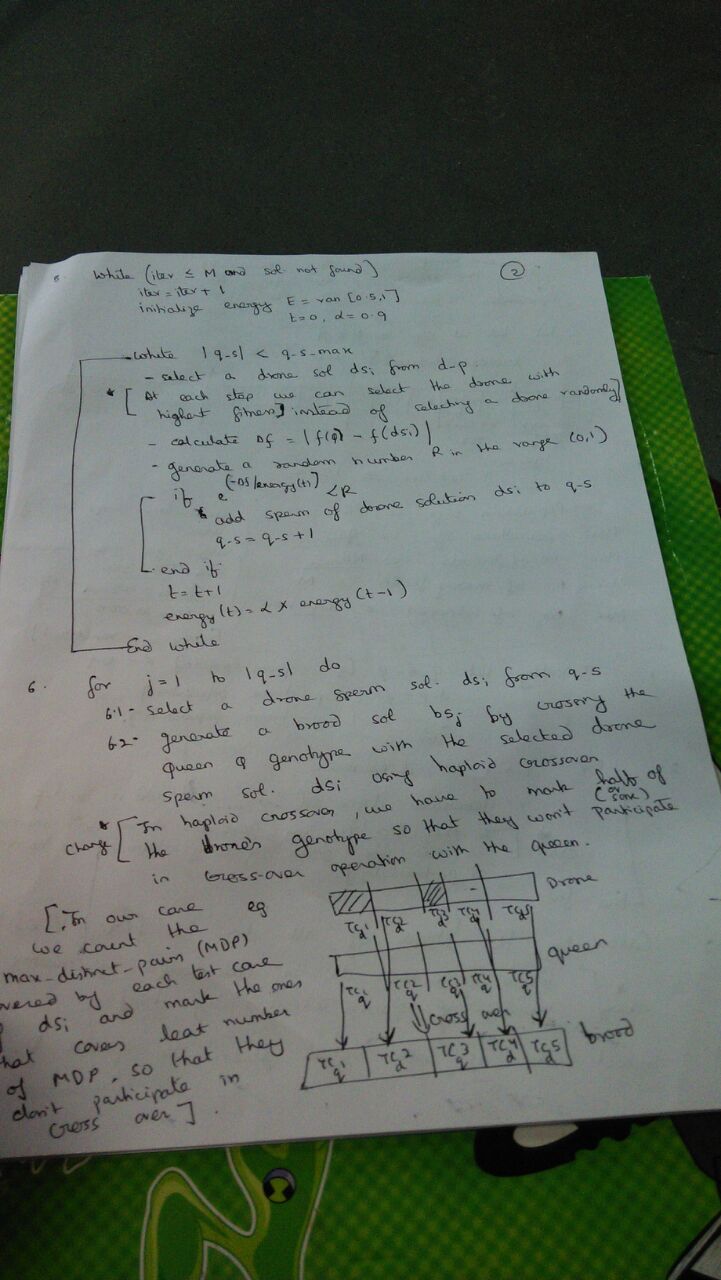 5. While (iter ≤ M and sol. not found)
②
iter = iter + 1
initialize energy E = ran [0.5,1]
t=0, α=0.9
while |q-s| < q-s-max
- select a drone sol dsi from d-p.
* [At each step we can select the drone with
highest fitness] instead of selecting a drone randomly]
- calculate Δf = |f(q) - f(dsi)|
- generate a random number R in the range (0,1)
if e^[-Δf/energy(t)] < R
* add sperm of drone solution dsi to q-s
q-s = q-s + 1
end if
t = t+1
energy(t) = α × energy(t-1)
End while
6. for j = 1 to |q-s| do
6.1- select a drone sperm sol. dsi from q-s
6.2- generate a brood sol bsj by crossing the
queen q genotype with the selected drone
sperm sol. dsi using haploid crossover
change * [In haploid crossover, we have to mark half of
(or some)
the drone's genotype so that they won't participate
in cross-over operation with the queen.
[In our case eg
we count the
max-distinct-pairs (MDP)
by each test case
dsi and mark the ones
covers least number
of MDP, so that they
don't participate in
cross over].
Drone
TCd1 TCd2 TCd3 TCd4 TCd5
queen
TC1q TC2q TC3q TC4q TC5q
cross over
TC1q TC2d TC3q TC4d TC5d
brood